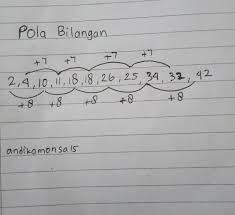 Pola Bilangan
+7 +7 +7 +7
2,4,10,11,18,18,26,25,34,32,42
+8 +8 +8 +8 +8
andikomonsa15